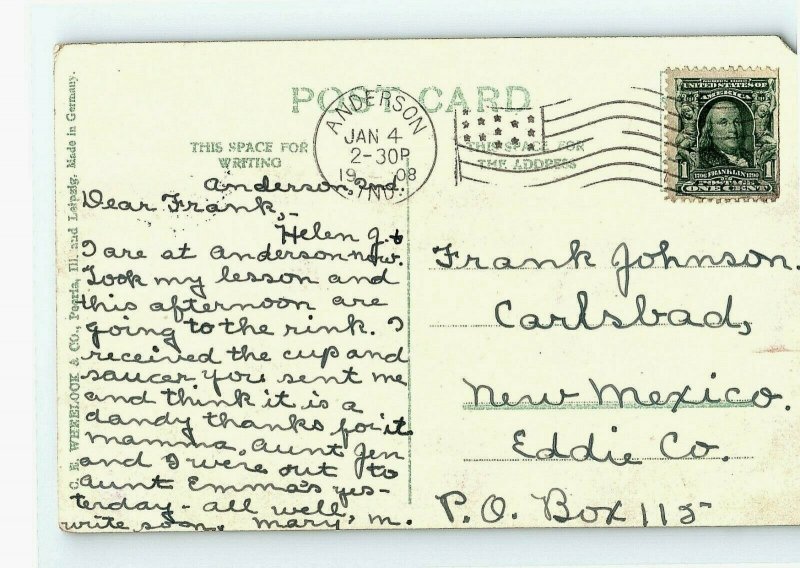 POST CARD
THIS SPACE FOR
WRITING
THIS SPACE FOR
THE ADDRESS
ANDERSON
JAN 4
2-30P
1908
IND.
UNITED STATES OF
AMERICA
1 1
1706 FRANKLIN 1790
POSTAGE
ONE CENT
C. E. WHEELOCK & CO., Peoria, Ill. and Leipzig. Made in Germany.
Anderson, Ind.
Dear Frank,-
Helen J. &
I are at Anderson now.
Took my lesson and
this afternoon are
going to the rink. I
received the cup and
saucer you sent me
and think it is a
dandy thanks for it
mamma, Aunt Jen
and I were out to
Aunt Emma's yes-
terday - all well,
write soon, Mary, M.
Frank Johnson.
Carlsbad,
New Mexico.
Eddie Co.
P.O. Box 115